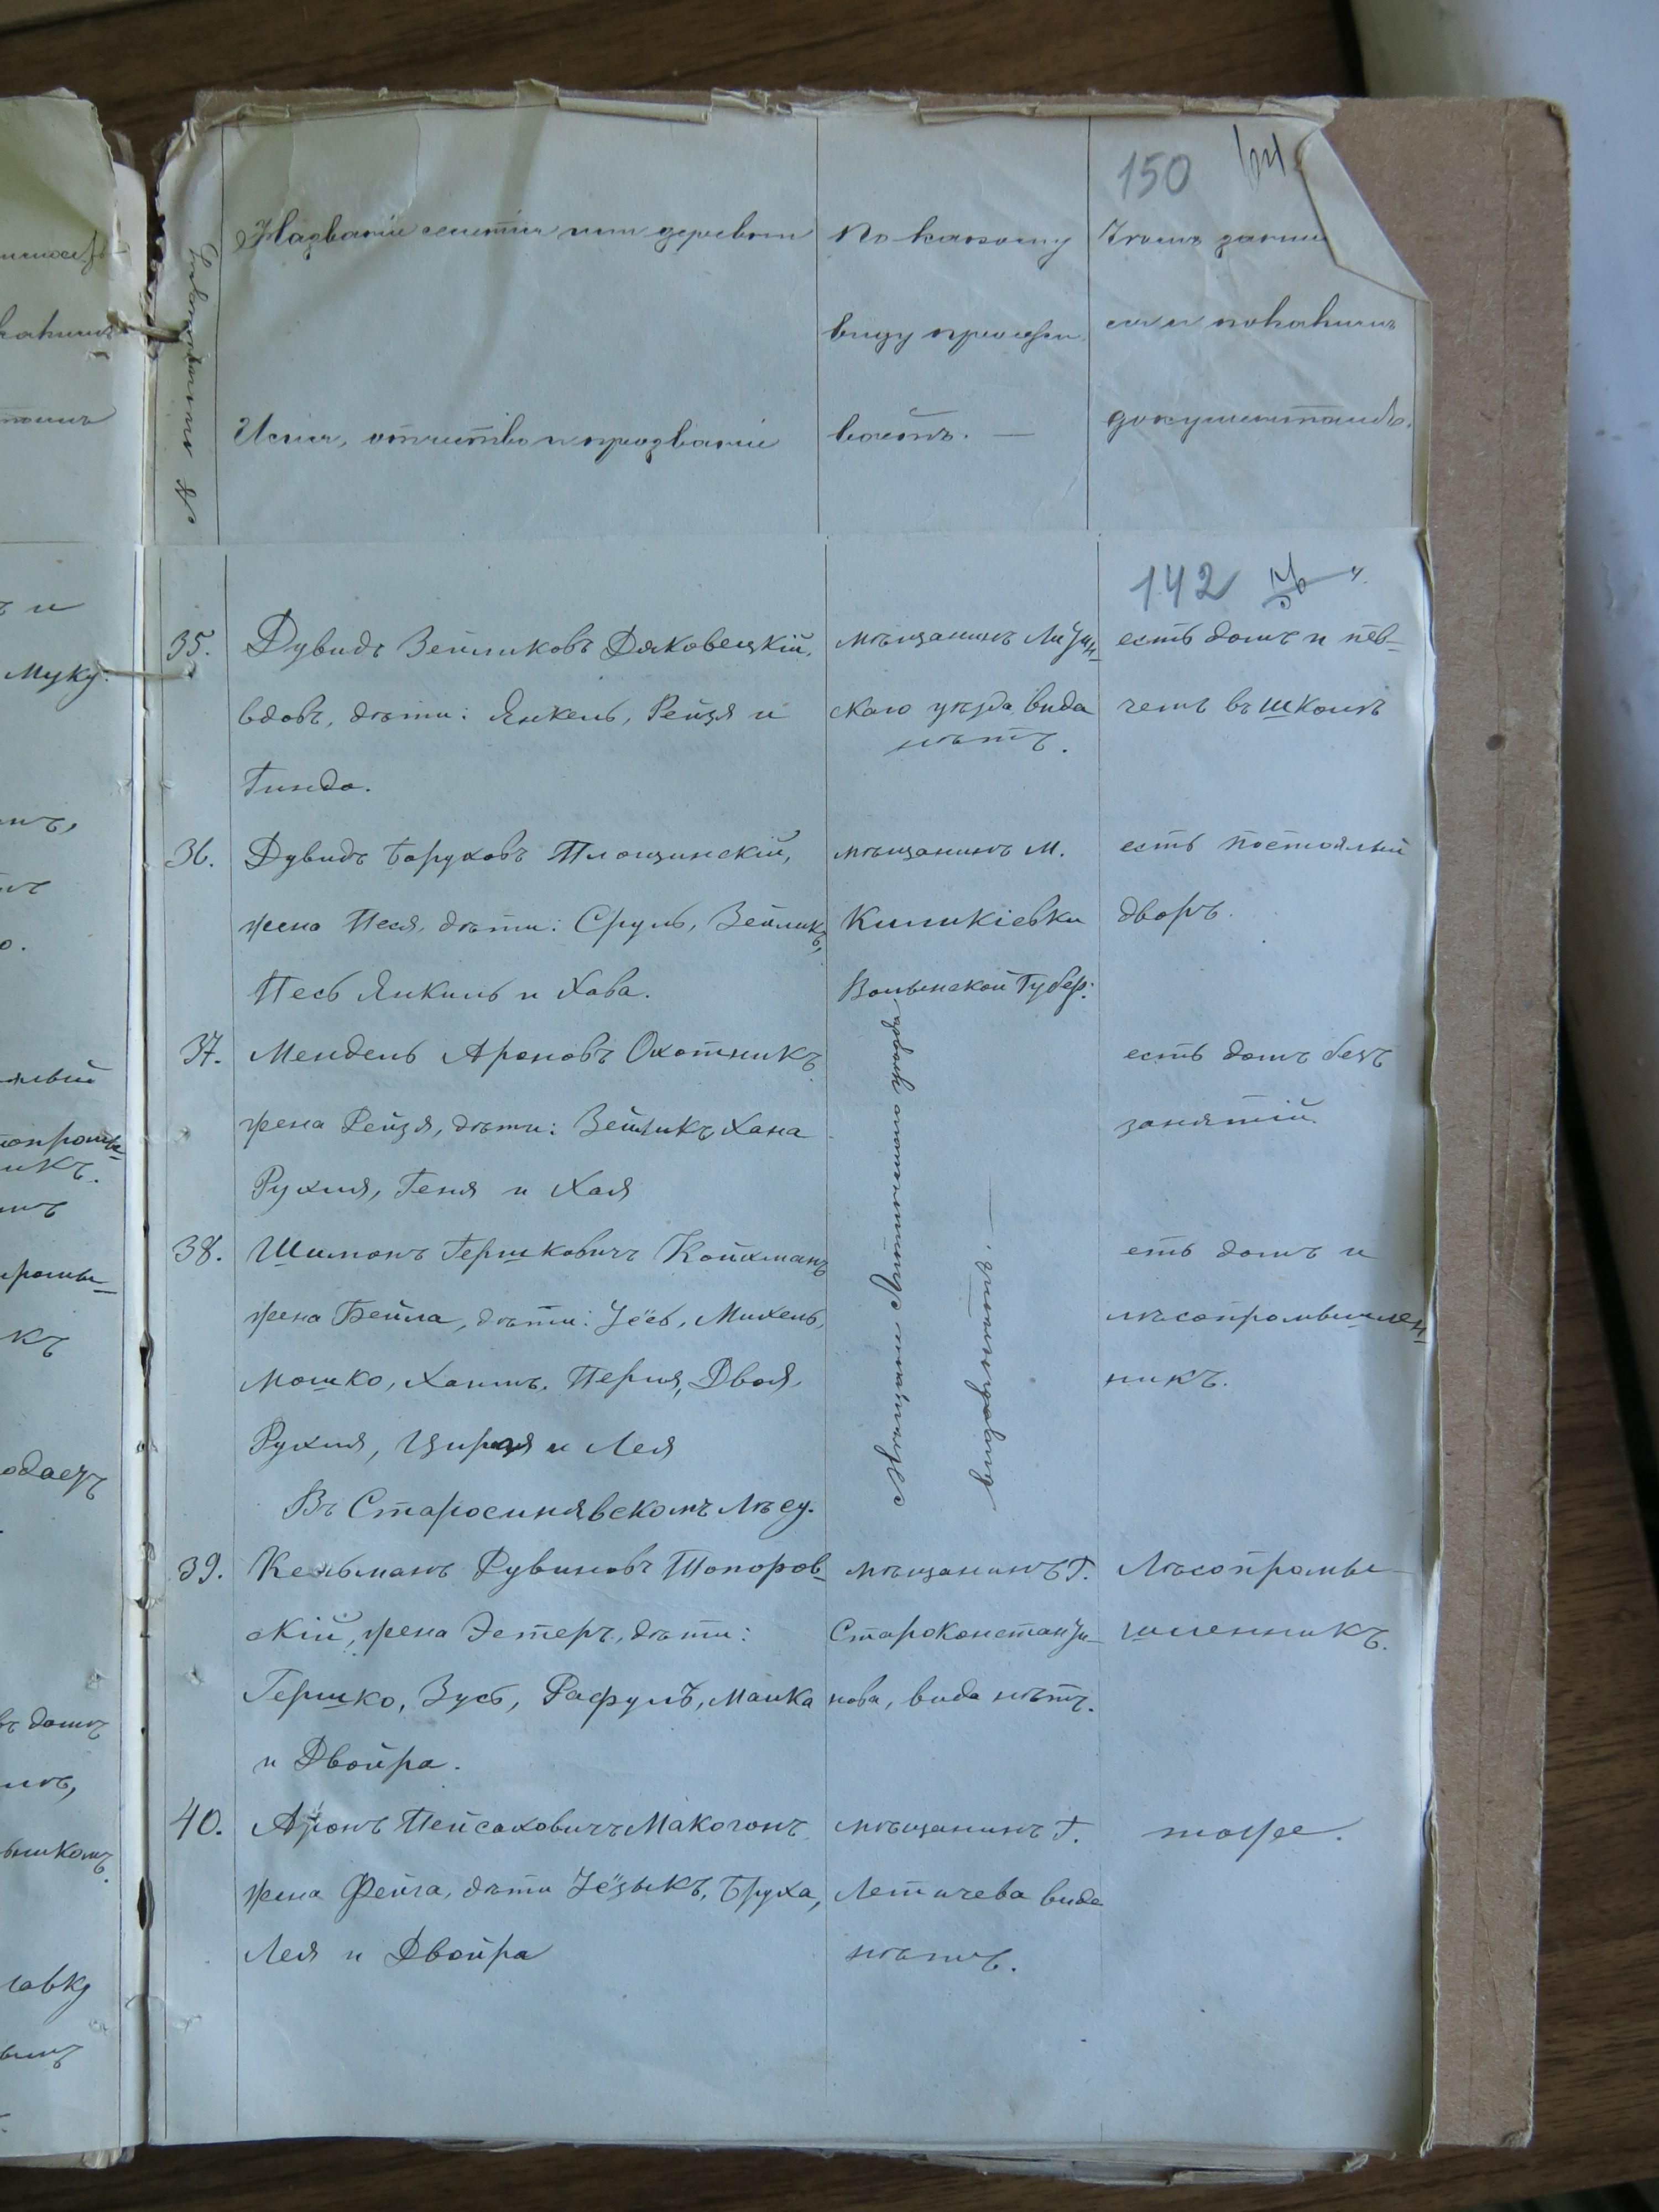 150
Названіе селенія или деревни
По какому
виду прожи
ваетъ. —
Чемъ занима
ется и покакимъ
документамъ.
Имя, отчество и прозваніе
№
142
35. Дувидъ Зейликовъ Дяковецкій,
вдовъ, дѣти: Янкель, Рейзя и
Гинда.
мѣщанинъ Литин-
скаго уѣзда вида
нѣтъ.
есть домъ и пѣв-
чемъ въ школѣ
36. Дувидъ Боруховъ Площинскій,
жена Песя, дѣти: Сруль, Зейликъ,
Песь Янкиль и Хава.
мѣщанинъ М.
Киликіевки
Волынской Губер:
есть постоялый
дворъ.
37. Мендель Ароновъ Охотникъ
жена Рейзя, дѣти: Зейликъ, Хана
Рухля, Геня и Хая
есть домъ безъ
занятій.
38. Шимонъ Гершковичъ Койхманъ
жена Бейла, дѣти: Іёсь, Михель,
Мошко, Хаимъ, Перля, Двоя,
Рухля, Цирля и Лея
есть домъ и
лѣсопромышлен-
никъ.
Въ Старосинявскомъ лѣсу.
39. Кельманъ Рувиновъ Топоров-
скій, жена Эстеръ, дѣти:
Гершко, Зусь, Рафулъ, Малка
и Двойра.
мѣщанинъ Г.
Староконстанти-
нова, вида нѣтъ.
Лѣсопромы-
шленникъ.
40. Аронъ Пейсаховичъ Макогонъ
жена Фейга, дѣти Іёзыкъ, Бруха,
Лея и Двойра
мѣщанинъ Г.
Летичева вида
нѣтъ.
тоже.